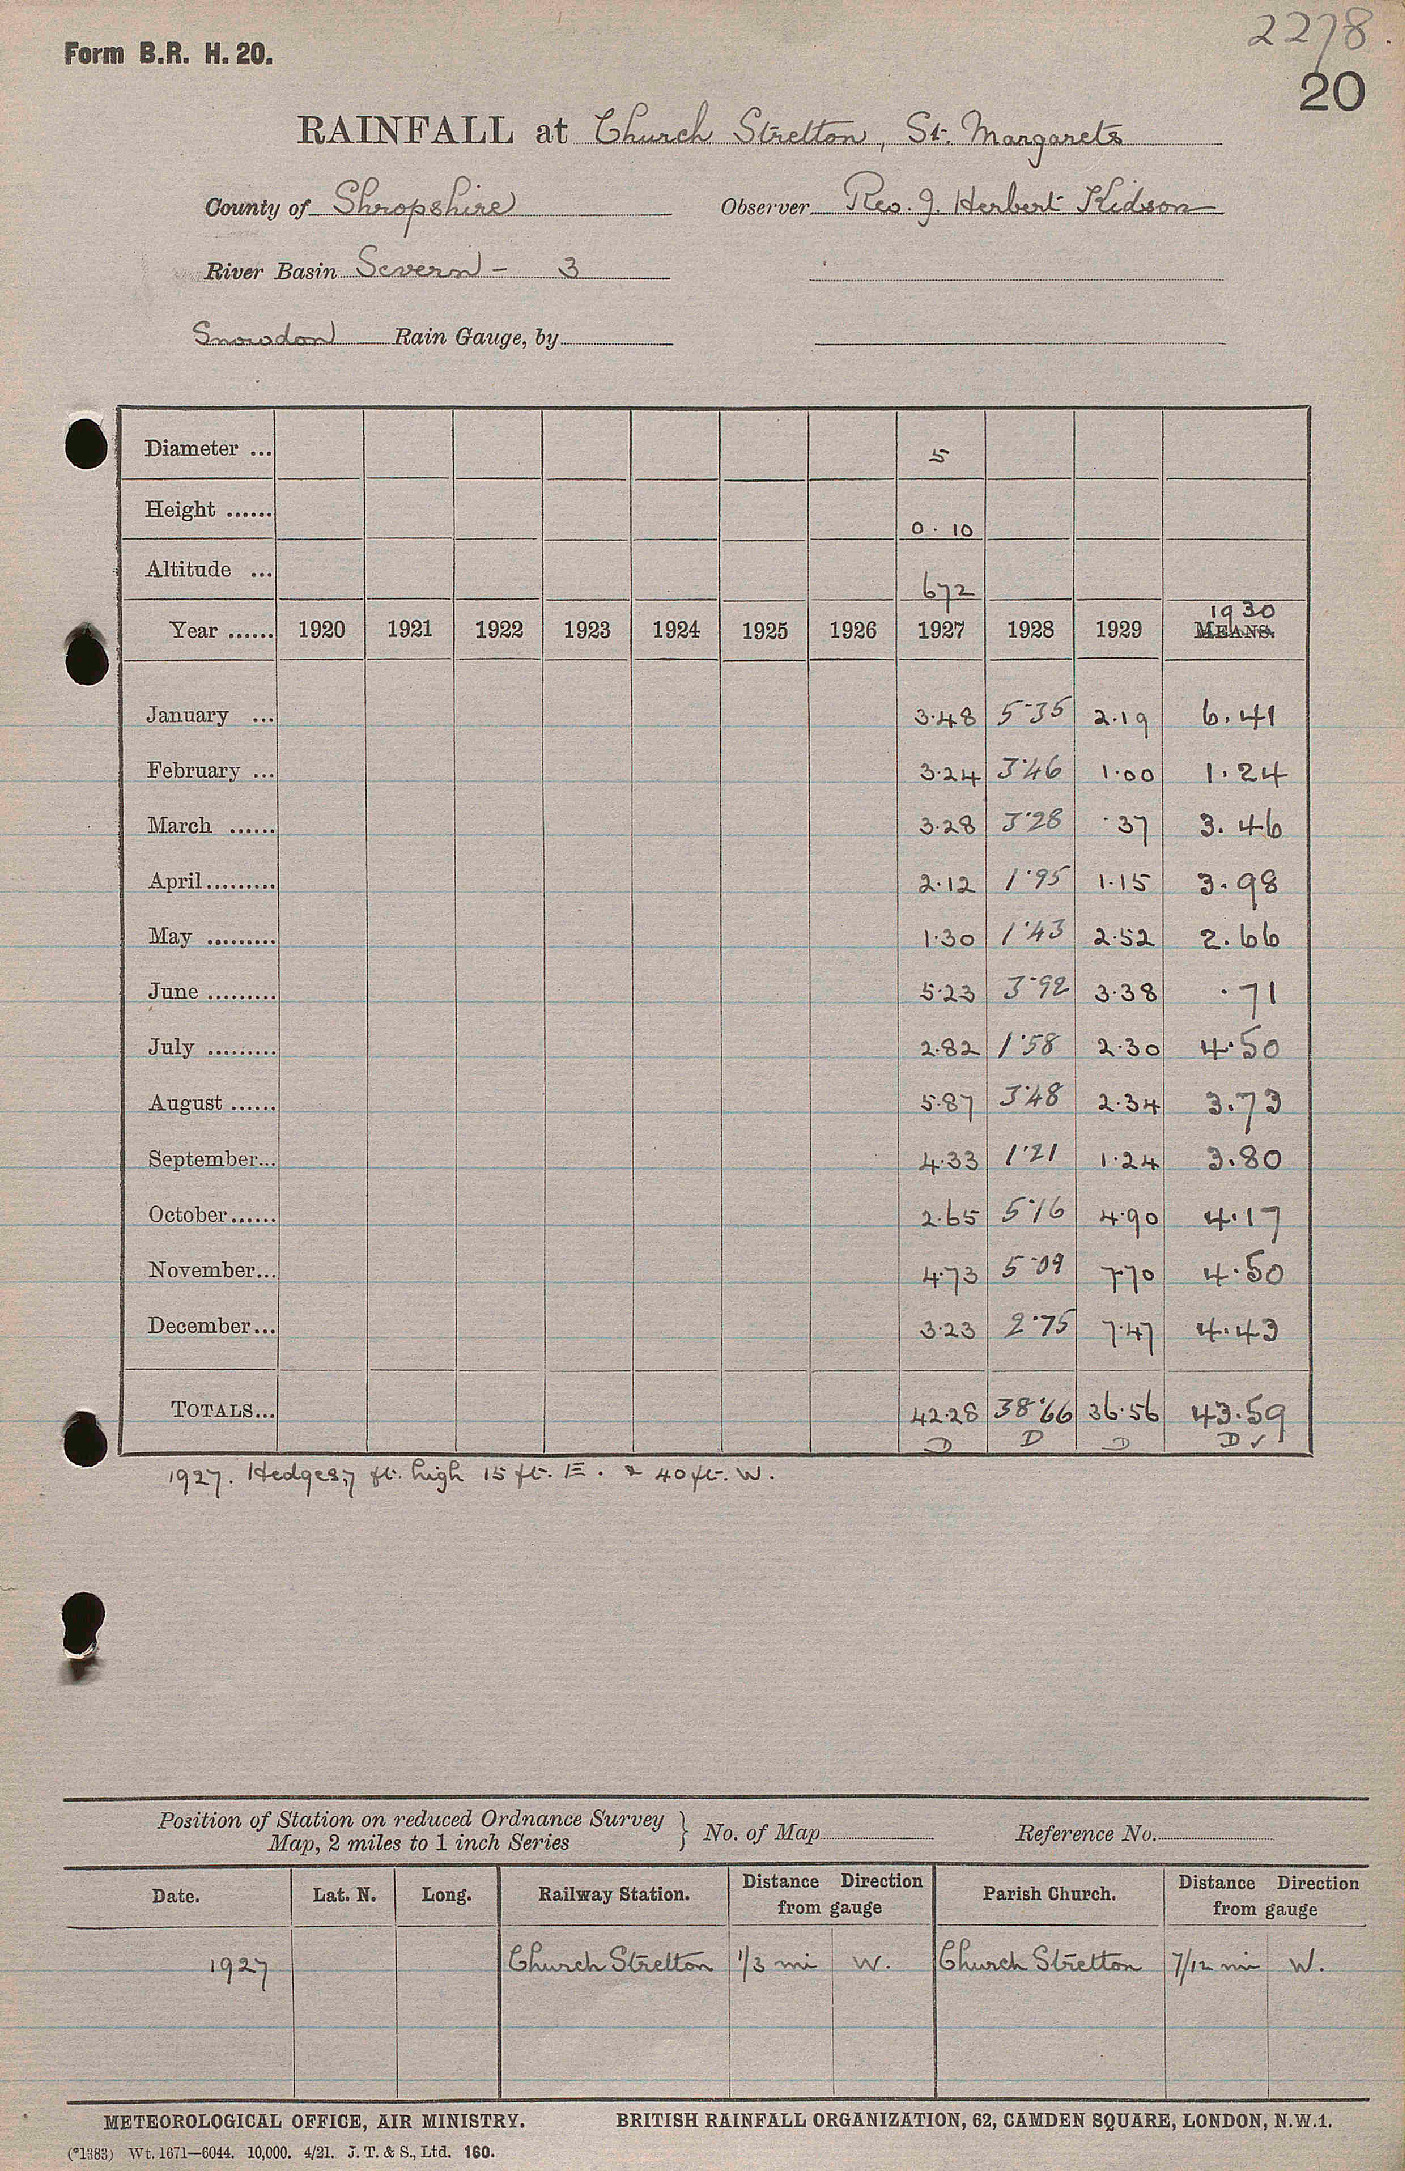 2278.
Form B.R. H. 20.
20
RAINFALL at Church Stretton, St. Margarets
County of Shropshire Observer Rev. J. Herbert Kidson
River Basin Severn - 3
Snowdon Rain Gauge, by
Diameter ... 5
Height ...... 0 . 10
Altitude ... 672
1930
Year ...... 1920 1921 1922 1923 1924 1925 1926 1927 1928 1929 MEANS.
January ... 3.48 5.35 2.19 6.41
February ... 3.24 3.46 1.00 1.24
March ...... 3.28 3.28 .37 3.46
April......... 2.12 1.95 1.15 3.98
May ......... 1.30 1.43 2.52 2.66
June ......... 5.23 3.92 3.38 .71
July ......... 2.82 1.58 2.30 4.50
August ...... 5.87 3.48 2.34 3.73
September... 4.33 1.21 1.24 3.80
October...... 2.65 5.16 4.90 4.17
November... 4.73 5.09 7.70 4.50
December... 3.23 2.75 7.47 4.43
TOTALS... 42.28 38.66 36.56 43.59
D D D D ✓
1927. Hedges, 7 ft. high 15 ft. E. & 40 ft. W.
Position of Station on reduced Ordnance Survey
Map, 2 miles to 1 inch Series } No. of Map Reference No.
Date. Lat. N. Long. Railway Station. Distance Direction from gauge Parish Church. Distance Direction from gauge
1927 Church Stretton 1/3 mi W. Church Stretton 7/12 mi W.
METEOROLOGICAL OFFICE, AIR MINISTRY. BRITISH RAINFALL ORGANIZATION, 62, CAMDEN SQUARE, LONDON, N.W.1.
(*1383) Wt. 1671—6044. 10,000. 4/21. J. T. & S., Ltd. 160.